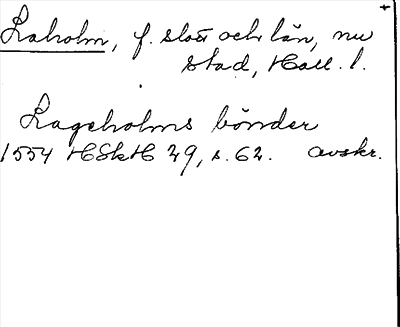 Laholm, f. slott och län, nu
stad, Hall. l.
Lageholms bönder
1554 HSkH 29, s. 62. avskr.